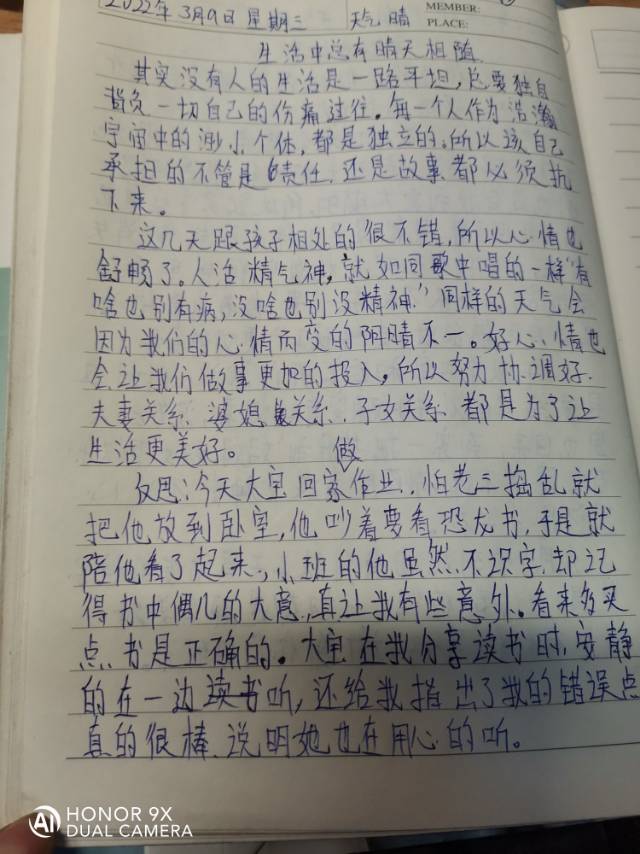 2022年3月9日 星期三 天气 晴
MEMBER:
PLACE:
生活中总有晴天相随
其实没有人的生活是一路平坦,总要独自
背负一切自己的伤痛过往。每一个人作为浩瀚
宇宙中的渺小个体,都是独立的,所以该自己
承担的不管是责任,还是故事都必须抗
下来。
这几天跟孩子相处的很不错,所以心情也
舒畅了。人活精气神,就如同歌中唱的一样"有
啥也别有病,没啥也别没精神"同样的天气会
因为我们的心情而变的阴晴不一。好心情也
会让我们做事更加的投入,所以努力协调好
夫妻关系、婆媳关系、子女关系都是为了让
生活更美好。
反思:今天大宝回家做作业,怕老三捣乱就
把他放到卧室,他吵着要看恐龙书,于是就
陪他看了起来,小班的他虽然不识字,却记
得书中偶儿的大意,真让我有些意外。看来多买
点书是正确的。大宝在我分享读书时,安静
的在一边读书听,还给我指出了我的错误点
真的很棒,说明她也在用心的听。
HONOR 9X
DUAL CAMERA